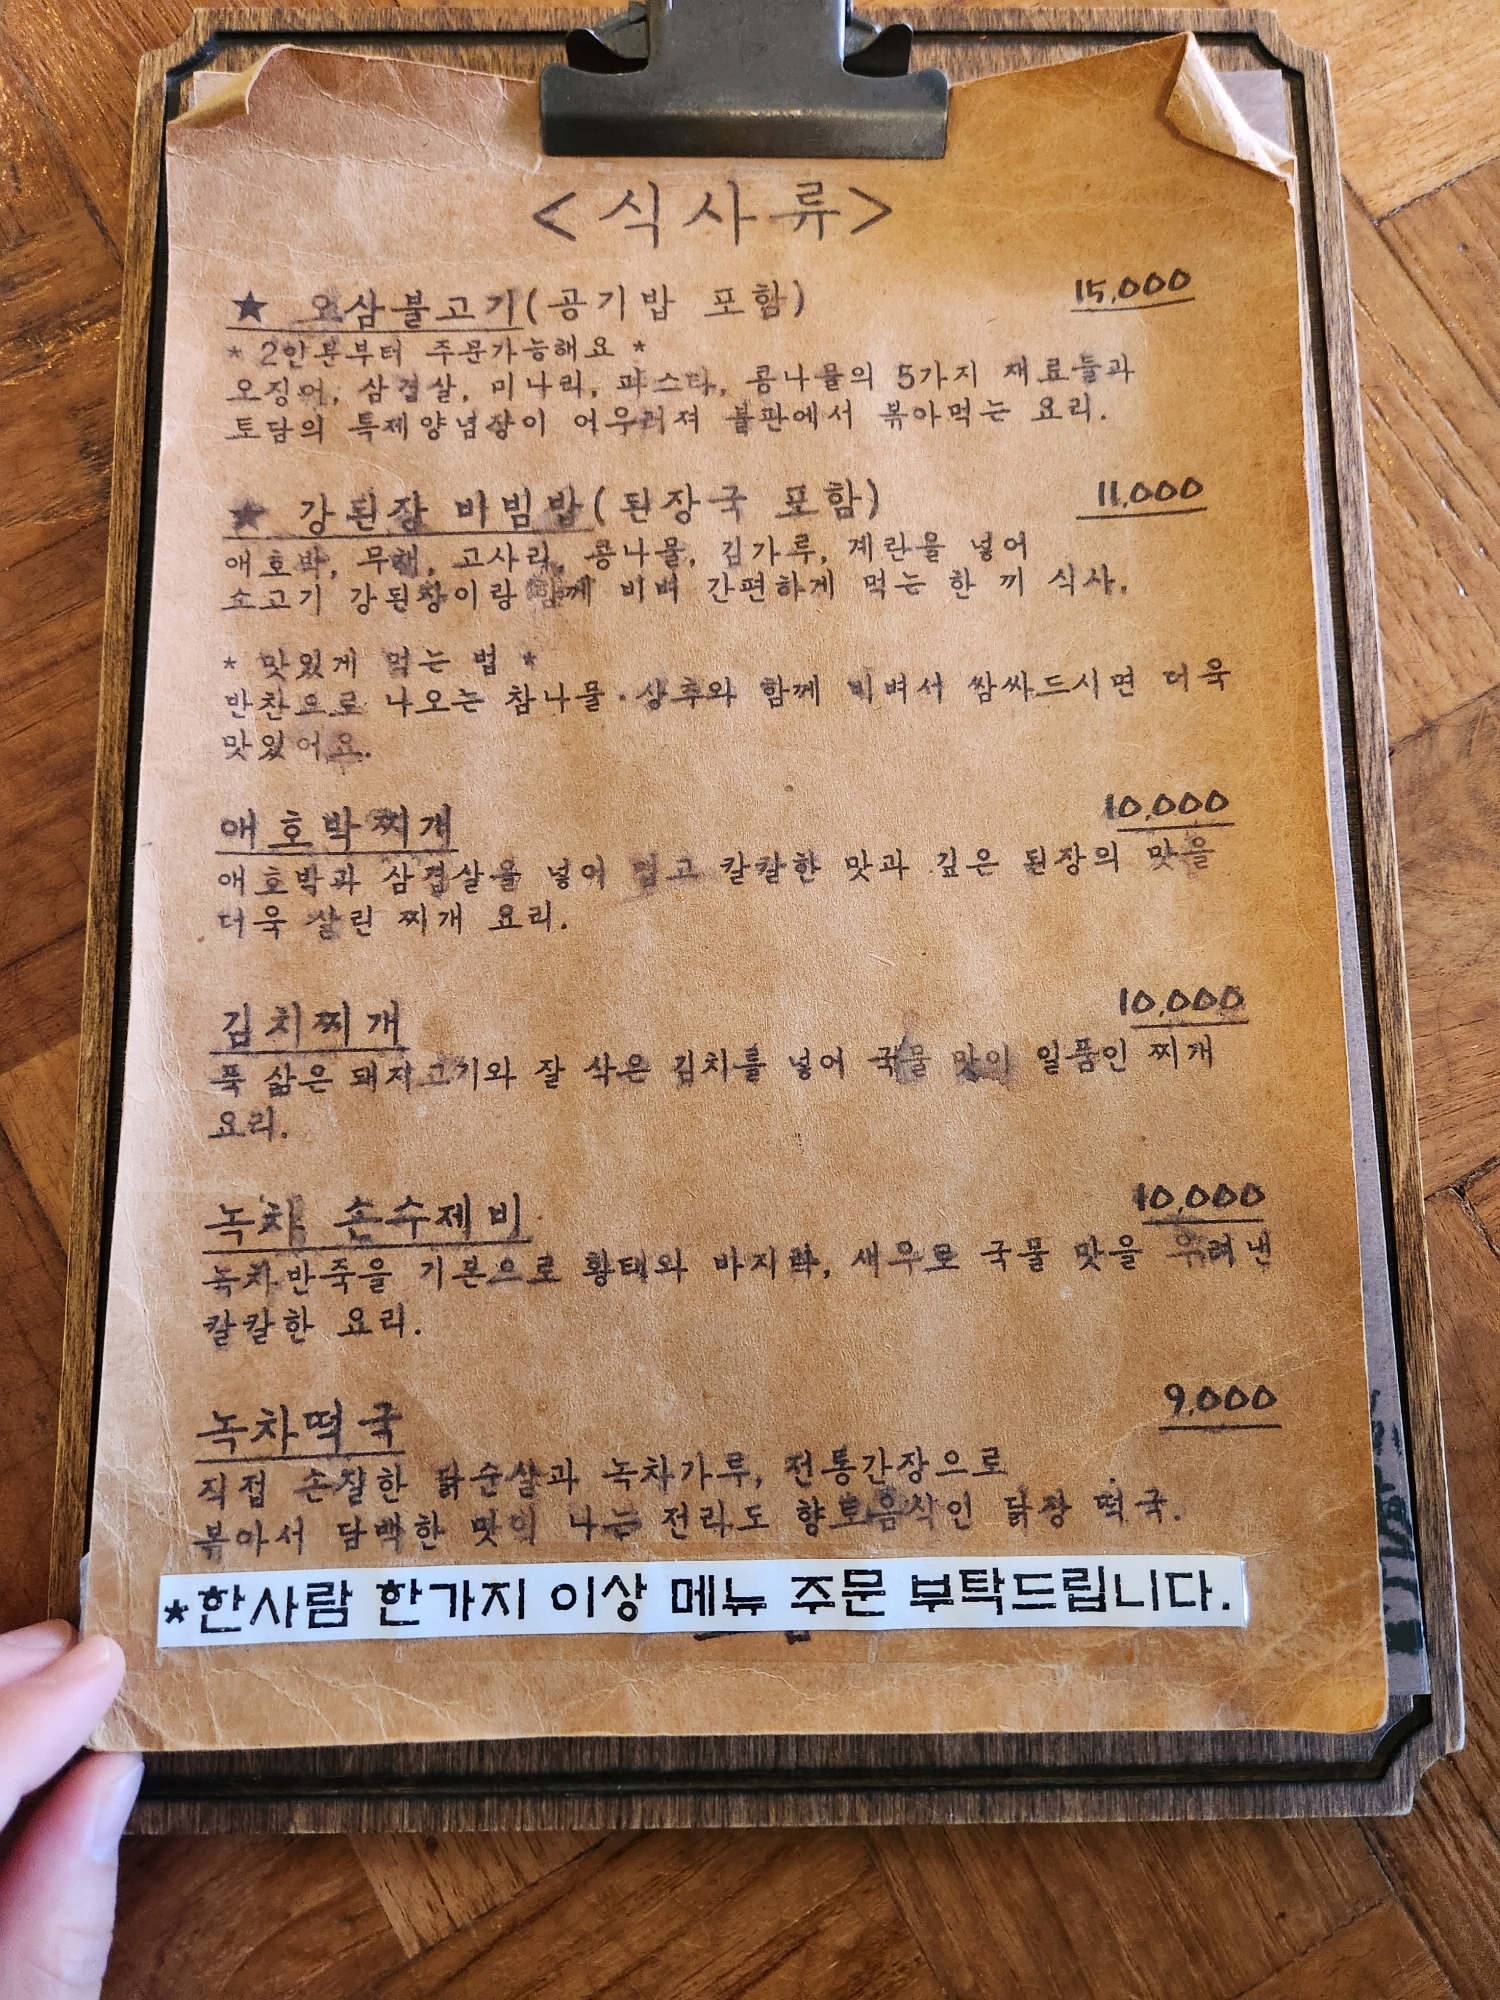 <식사류>
★ 오삼불고기(공기밥 포함) 15,000
* 2인분부터 주문가능해요 *
오징어, 삼겹살, 미나리, 파스타, 콩나물의 5가지 재료들과
토담의 특제양념장이 어우러져 불판에서 볶아먹는 요리.
★ 강된장 비빔밥(된장국 포함) 11,000
애호박, 무채, 고사리, 콩나물, 김가루, 계란을 넣어
소고기 강된장이랑 함께 비벼 간편하게 먹는 한 끼 식사.
* 맛있게 먹는 법 *
반찬으로 나오는 참나물·상추와 함께 비벼서 쌈싸드시면 더욱
맛있어요.
애호박찌개 10,000
애호박과 삼겹살을 넣어 고 칼칼한 맛과 깊은 된장의 맛을
더욱 살린 찌개 요리.
김치찌개 10,000
푹 삶은 돼지고기와 잘 삭은 김치를 넣어 국물 맛이 일품인 찌개
요리.
녹차 손수제비 10,000
녹차반죽을 기본으로 황태와 바지락, 새우로 국물 맛을 우려낸
칼칼한 요리.
녹차떡국 9,000
직접 손질한 닭순살과 녹차가루, 전통간장으로
볶아서 담백한 맛이 나는 전라도 향토음식인 닭장 떡국.
*한사람 한가지 이상 메뉴 주문 부탁드립니다.